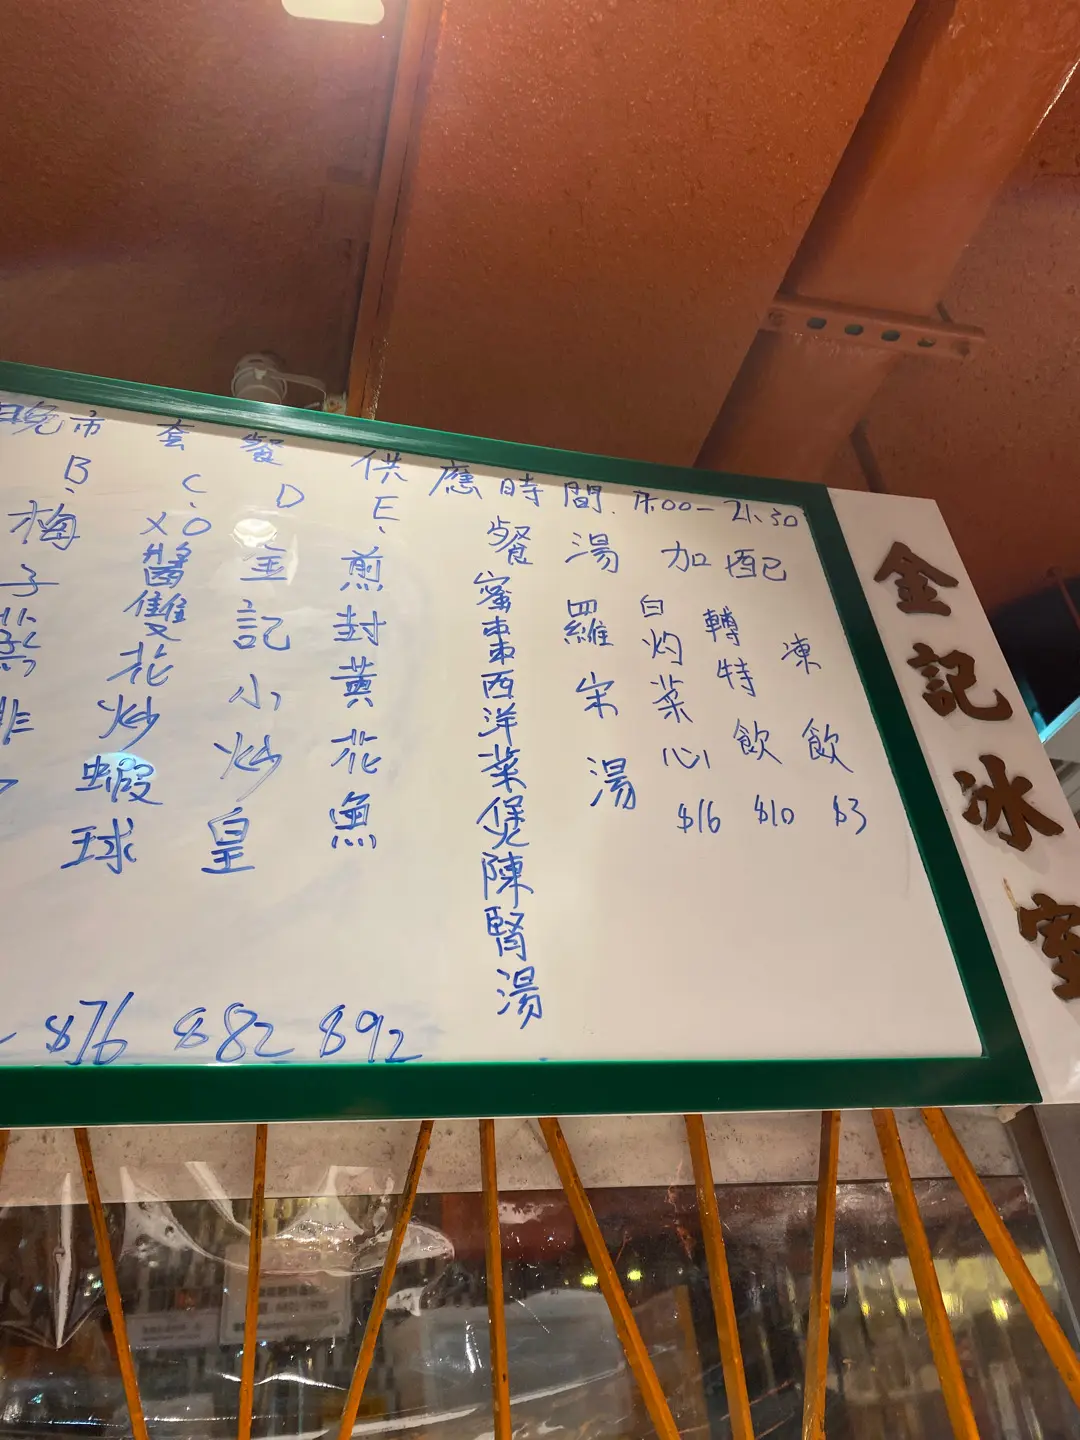 晚市套餐供應時間
B.
梅子
C.
XO醬雙花炒蝦球
$76
D
金記小炒皇
$82
E.
煎封黃花魚
$92
餐湯
蜜棗西洋菜煲陳腎湯
羅宋湯
加配
白灼菜心 $16
轉特飲 $10
凍飲 $3
金記冰室